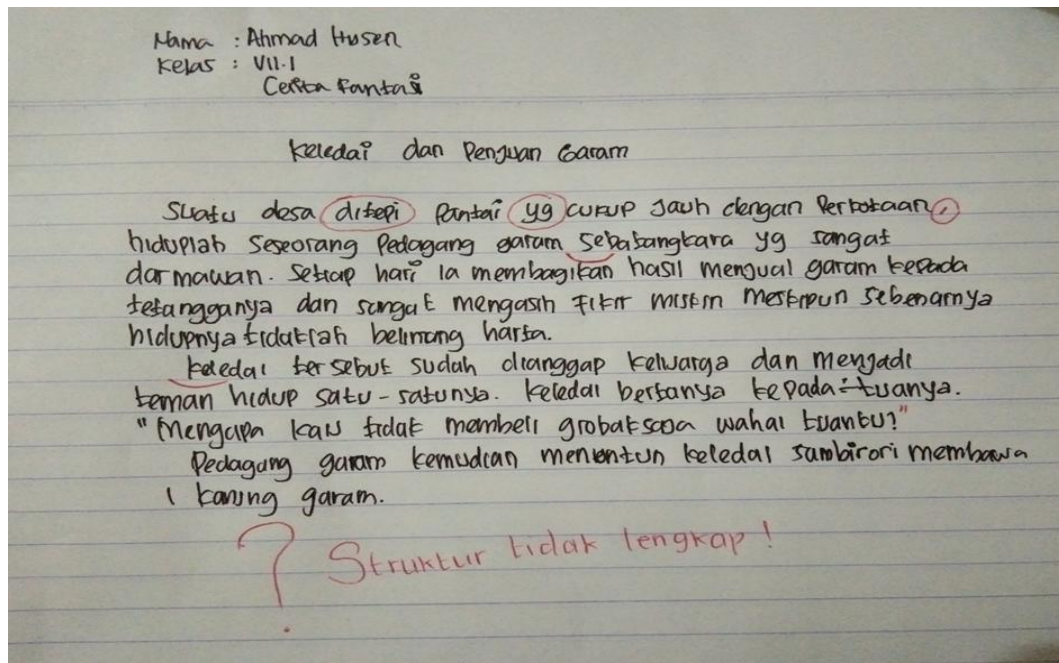 Nama : Ahmad Husen
Kelas : VII.1
Cerita Fantasi
Keledai dan Penjual Garam
Suatu desa ditepi Pantai yg cukup Jauh dengan Perkotaan,
hiduplah Seseorang Pedagang garam Sebatangkara yg sangat
darmawan. Setiap hari Ia membagikan hasil menjual garam kepada
tetangganya dan sangat mengasih fikir miskin meskipun sebenarnya
hidupnya tidaklah belimang harta.
keledai tersebut sudah dianggap keluarga dan menjadi
teman hidup satu-satunya. keledai bertanya kepada tuanya.
"Mengapa kau tidak membeli grobak saja wahai tuanku?"
Pedagang garam kemudian menuntun keledai membawa
1 karung garam.
? Struktur tidak lengkap!